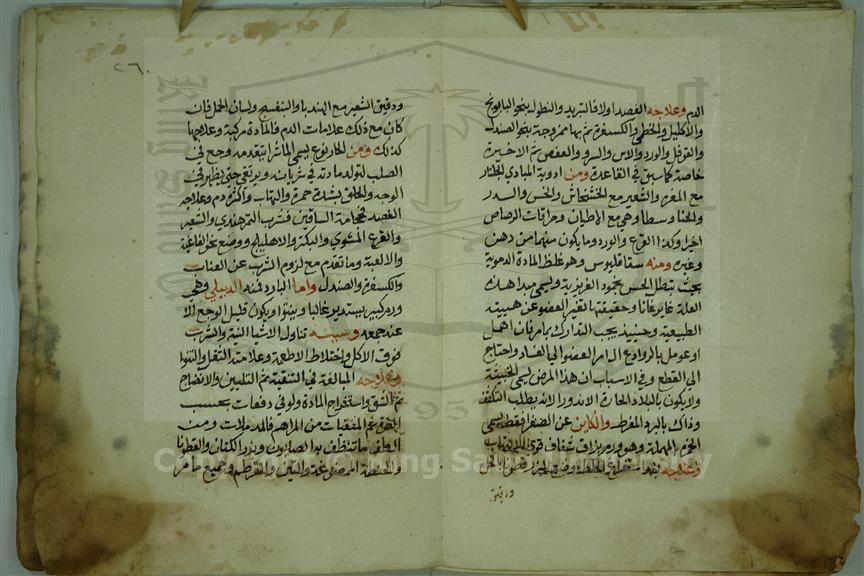 الدم وعلاجه الفصد اولا فالتبريد والنطول بنحو البابونج
والاكليل والخطمي والكسفرة ثم بهما ممزوجة بنحو الصندل
والقوفل والورد والاس والسرو والعفص ثم الاخيرة
خاصة كما سبق في القاعدة ومن ادوية المبادي الجلنار
مع المغره والشعير مع الخشخاش والخس والسدر
والحنا وسطا وهي مع الاطيان وحراقات الرصاص
اخيرا وكذا القرع والورد وما يكون منهما من دهن
وغيره ومنه سقاقليوس وهو غلظ المادة الدموية
بحيث تبطل الحس بجمود الغريزية ويسمى مبدا هذه
العلة غانغرانا وحقيقتها تغير العضو عن هيبته
الطبيعية وحينيذ يجب التدارك بما مر فان اهمل
او عومل بالروادع الـ امر العضو الى الفساد واحتاج
الى القطع وفي الاسباب ان هذا المرض يسمى الخبيثة
ولا يكون بالبلاد الحارة الا ندورا لانه يطلب التكثف
وذاك بالبرد المفرط والكاين عن الصفرا فقط يسمى
الحمره بالمهملة وهو ورم براق شفاف قوي
وعلاجه بعد استفراغ الخلط وضع
ودقيق
٢٦٠
ودقيق الشعير مع الهندبا والبنفسج ولسان الحمل فان
كان مع ذلك علامات الدم فالمادة مركبة وعلاجها
كذلك ومن الحار نوع يسمى الماشرا يتقدمه وجع في
الصلب لتولد مادته في شريانه ويرتقي حتى يظهر في
الوجه والحلق بشدة حمرة والتهاب واكثره دم وعلاجه
الفصد فحجامة الساقين فشرب التمر هندي والشعير
والقرع المشوي والبكتر والاهليلج ووضع نحو الفاغية
والالعبة وما تقدم مع لزوم الشرب عن العناب
والكسفرة والصندل واما البارد فمنه الدبيلي وهي
ورم كبير يستدير غالبا وينتو ويكون قليل الوجع الا
عند جمعه وسببه تناول الاشيا النية والشرب
فوق الاكل واختلاط الاطعمة وعلامته الثقل والنتوا
وعلاجه المبالغة في التنقية ثم التليين والانضاج
ثم الشق واستخراج المادة ولو في دفعات بحسب
القوة ثم المنقيات من المراهم فالمدملات ومن
ما تنظف به الصابون وبزر الكتان والقطونا
والحنطة الممضوغة والتين والقرطم وجميع ما مر
Copyright © King Saud University
1957